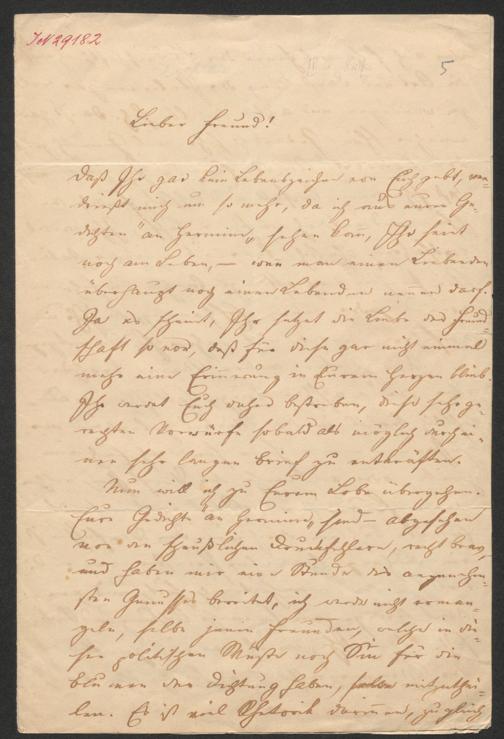 IN 29182
5
Lieber Freund!
Daß Ihr gar kein Lebenszeichen von Euch gebt, ver-
drießt mich um so mehr, da ich aus euren Ge-
dichten "an Hermine" sehen kann, Ihr seid
noch am Leben, — wenn man einen Liebenden
überhaupt noch einen Lebenden nennen darf.
Ja es scheint, Ihr setzet die Liebe der Freund-
schaft so vor, daß für diese gar nicht einmal
mehr eine Erinnerung in Eurem Herzen blieb.
Ihr werdet Euch daher bestreben, diese sehr ge-
rechten Vorwürfe sobald als möglich durch ei-
nen sehr langen Brief zu entkräften.
Nun will ich zu Eurem Lobe übergehen.
Eure Gedichte "an Hermine" sind — abgesehen
von den scheußlichen Druckfehlern, recht brav,
und haben mir eine Stunde des angenehm-
sten Genusses bereitet, ich werde nicht erman-
geln, selbe jenen Freunden, welche in die-
ser politischen Wüste noch Sinn für die
Blumen der Dichtung haben, mitzuthei-
len. Es ist viel Rhetorik darinnen, zugleich